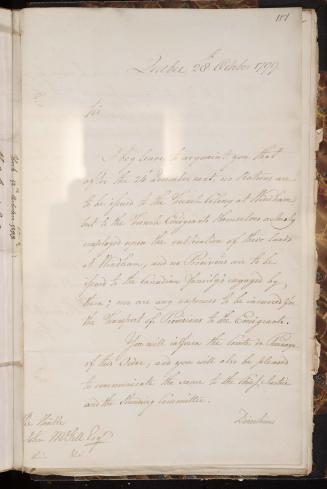 Quebec 28th October 1799
Sir
I beg leave to acquaint you that
after the 24 December next, no Rations are
to be issued to the French Colony at Windham
but to the French Emigrants themselves actually
employed upon the cultivation of their Lands
at Windham, and no Provisions are to be
issued to the Canadian Families engaged by
them; nor are any expences to be incurred for
the Transport of Provisions to the Emigrants.
You will inform the Comte de Puisaye
of this Order, and you will also be pleased
to communicate the same to the Chief Justice
and the Standing Committee.
John McGill Esqr